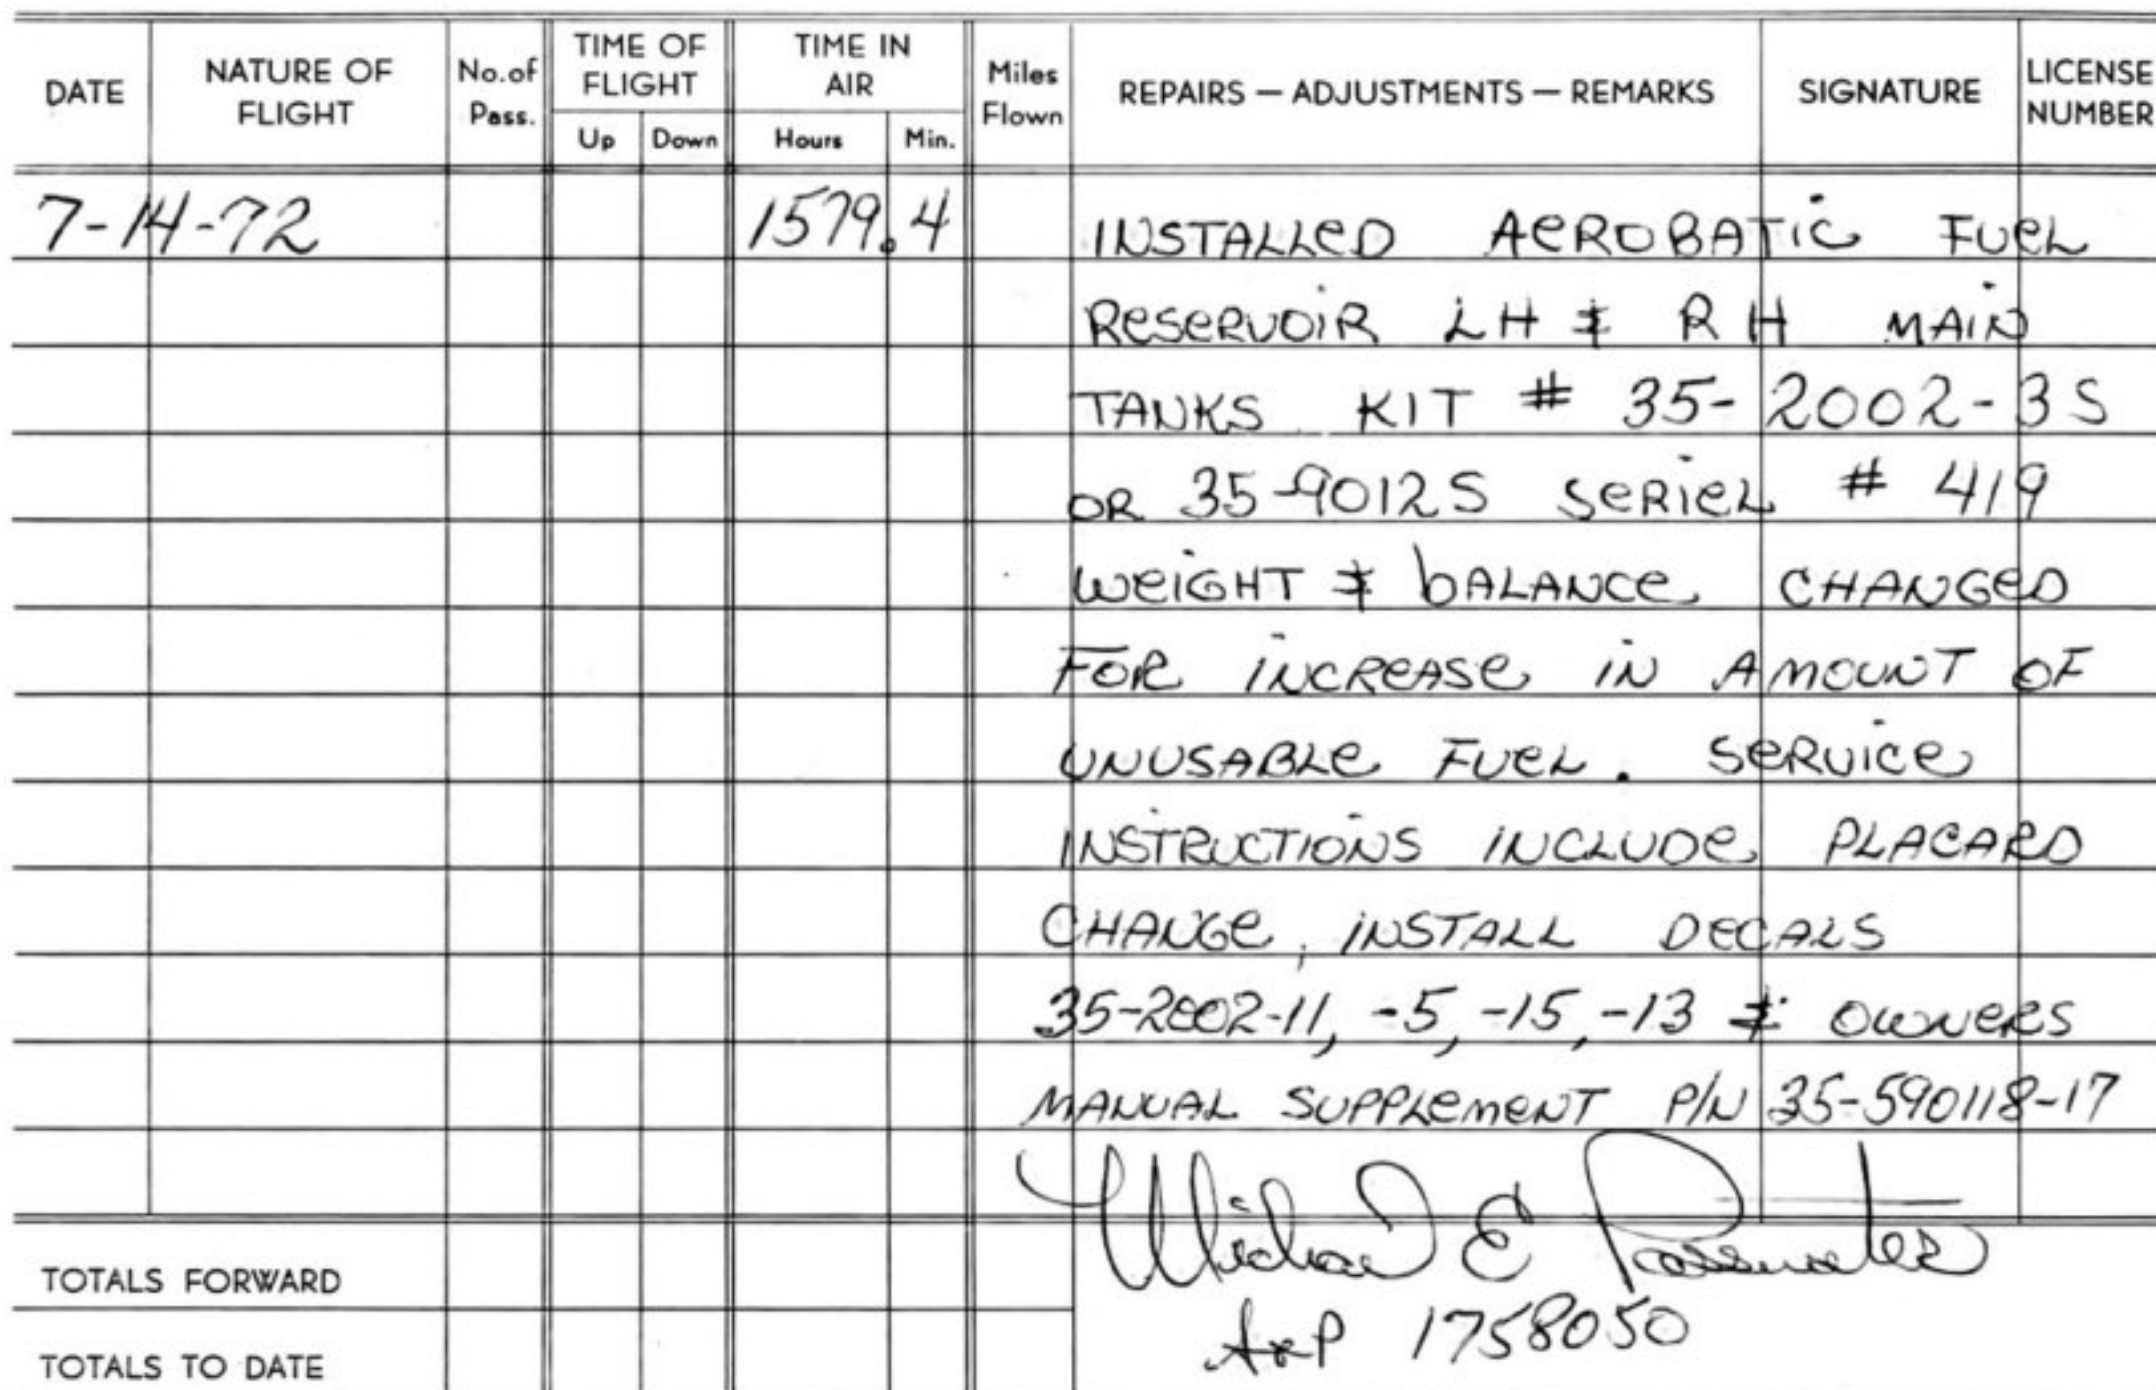 DATE NATURE OF FLIGHT No.of Pass. TIME OF FLIGHT TIME IN AIR Miles Flown REPAIRS — ADJUSTMENTS — REMARKS SIGNATURE LICENSE NUMBER
Up Down Hours Min.
7-14-72 1579.4 INSTALLED AEROBATIC FUEL
RESERVOIR LH & RH MAIN
TANKS KIT # 35-2002-3S
OR 35-9012S SERIEL # 419
WEIGHT & BALANCE CHANGED
FOR INCREASE IN AMOUNT OF
UNUSABLE FUEL. SERVICE
INSTRUCTIONS INCLUDE PLACARD
CHANGE, INSTALL DECALS
35-2002-11, -5, -15, -13 & OWNERS
MANUAL SUPPLEMENT P/N 35-590118-17
Michael E Passwater
TOTALS FORWARD
A&P 1758050
TOTALS TO DATE